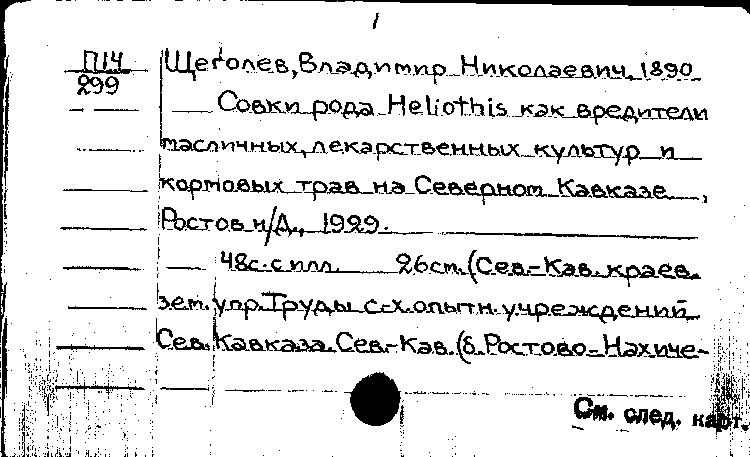 1
П14
299
Щеголев, Владимир Николаевич, 1890
Совки рода Heliothis как вредители
масличных, лекарственных культур и
кормовых трав на Северном Кавказе,
Ростов н/Д., 1929.
48с. с илл. 26см. (Сев.-Кав. краев.
зем. упр. Труды с-х. опытн. учреждений
Сев. Кавказа. Сев.-Кав. (б. Ростово-Нахиче-
См. след. карт.